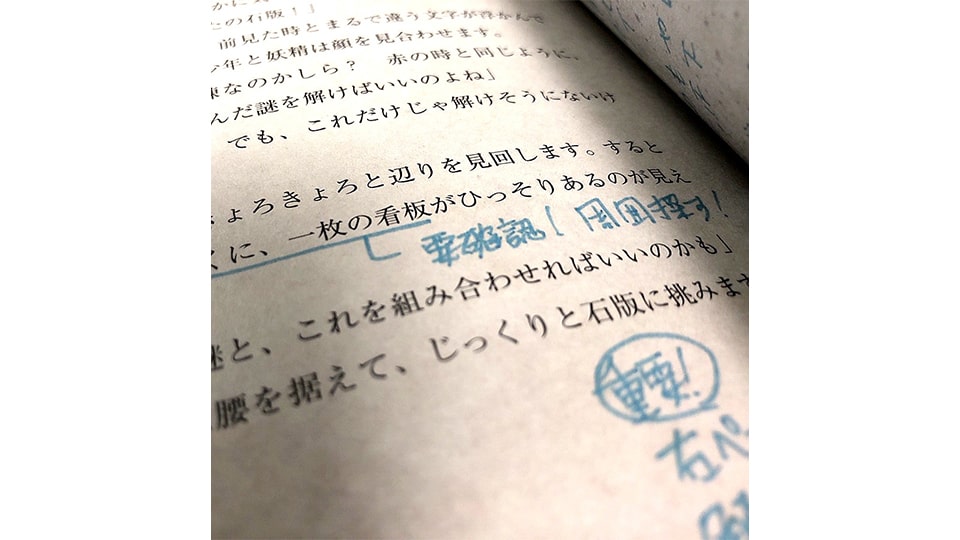 たの石版！」
前見た時とまるで違う文字が浮かんで
年と妖精は顔を見合わせます。
なのかしら？　赤の時と同じように、
んだ謎を解けばいいのよね」
でも、これだけじゃ解けそうにないけ
きょろきょろと辺りを見回します。すると
くに、一枚の看板がひっそりあるのが見え
要確認！周囲探す！
謎と、これを組み合わせればいいのかも」
腰を据えて、じっくりと石版に挑みます
重要！
右ペー